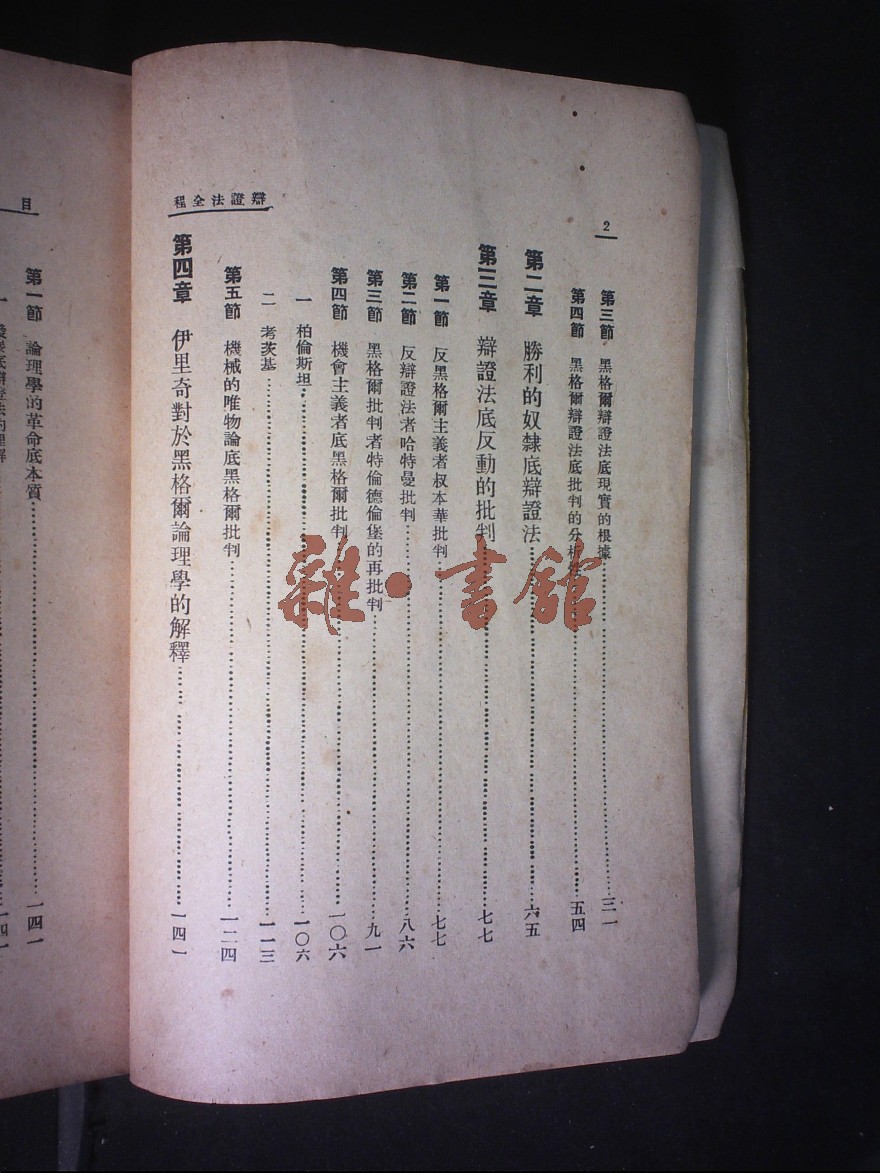 2
第三節 黑格爾辯證法底現實的根據……三一
第四節 黑格爾辯證法底批判的分析……五四
第二章 勝利的奴隸底辯證法……六五
第三章 辯證法底反動的批判……七七
第一節 反黑格爾主義者叔本華批判……七七
第二節 反辯證法者哈特曼批判……八六
第三節 黑格爾批判者特倫德倫堡的再批判……九一
第四節 機會主義者底黑格爾批判……一〇六
一 柏倫斯坦……一〇六
二 考茨基……一一三
第五節 機械的唯物論底黑格爾批判……一二四
第四章 伊里奇對於黑格爾論理學的解釋……一四一
程全法證辯
目
第一節 論理學的革命底本質……一四一
雜·書館